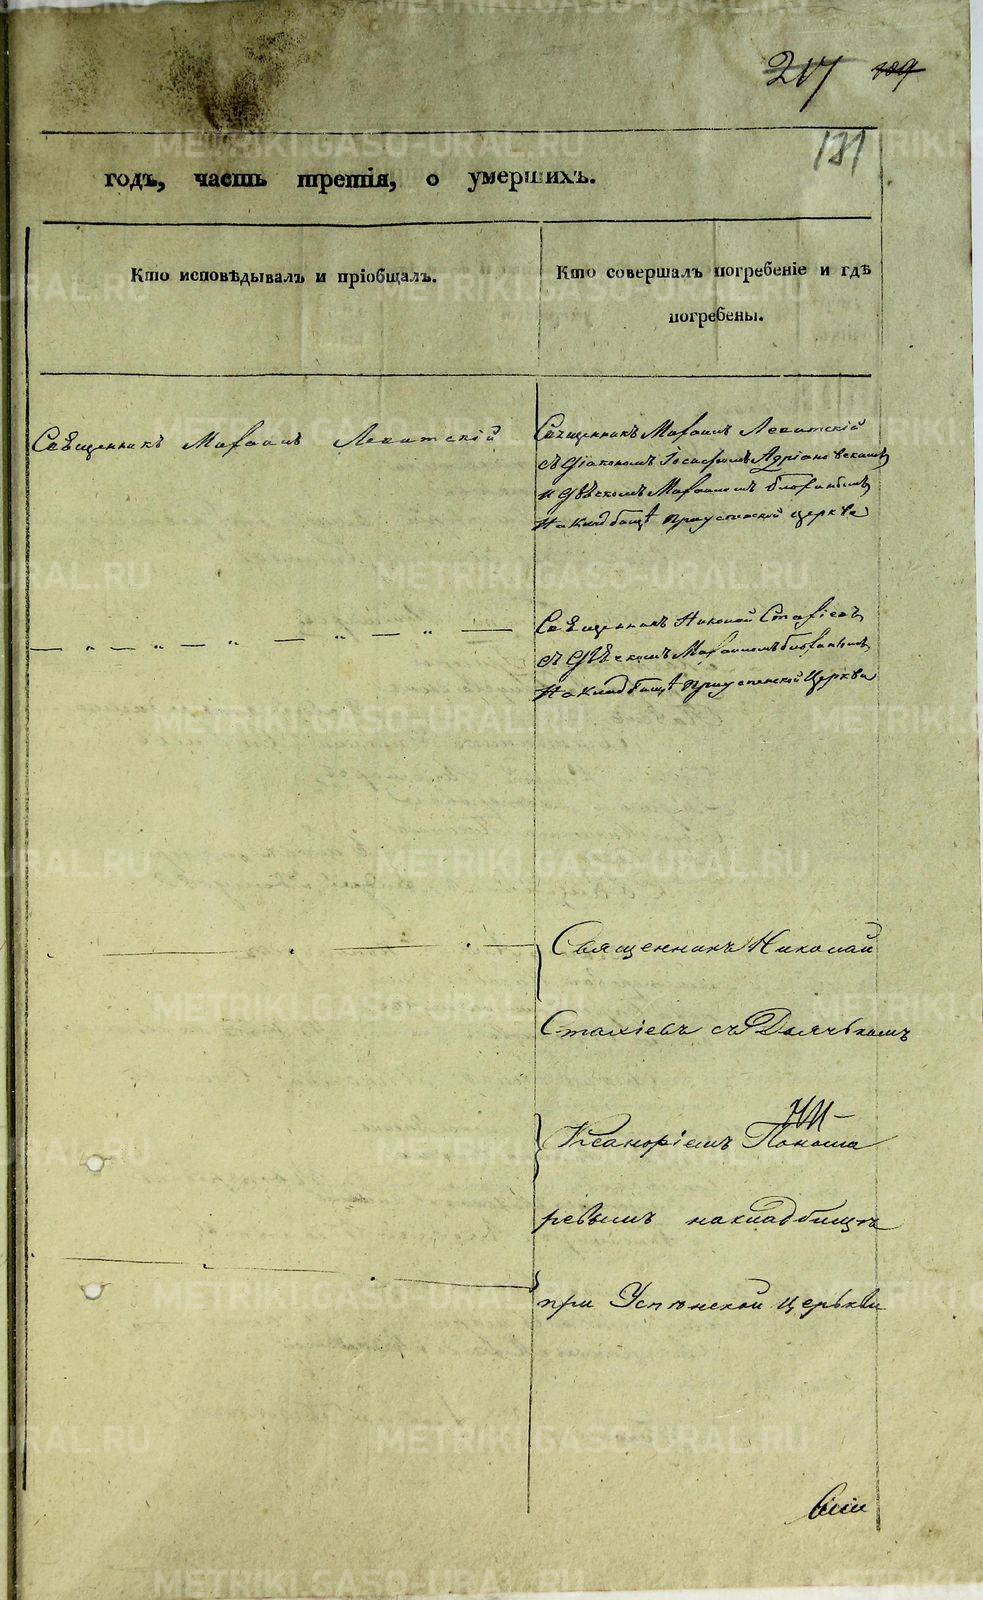 217 109
131
годъ, часть третія, о умершихъ.
Кто исповѣдывалъ и пріобщалъ.
Кто совершалъ погребеніе и гдѣ
погребены.
Священникъ Михаилъ Левитскій
Священникъ Михаилъ Левитскій
съ Діакономъ Іоасафомъ Адріановскимъ
и Дьѣчкомъ Михаиломъ
На Кладбищѣ При успенской церкве
Священникъ Николай Стахіевъ
съ Дьѣчкомъ Михаиломъ
На Кладбищѣ При успенской Церкви
Священникъ Николай
Стахіевъ съ Дьячькомъ
Никаноріемъ Поно
ревымъ накладбищѣ
при Успѣнской церькви
METRIKI.GASO-URAL.RU